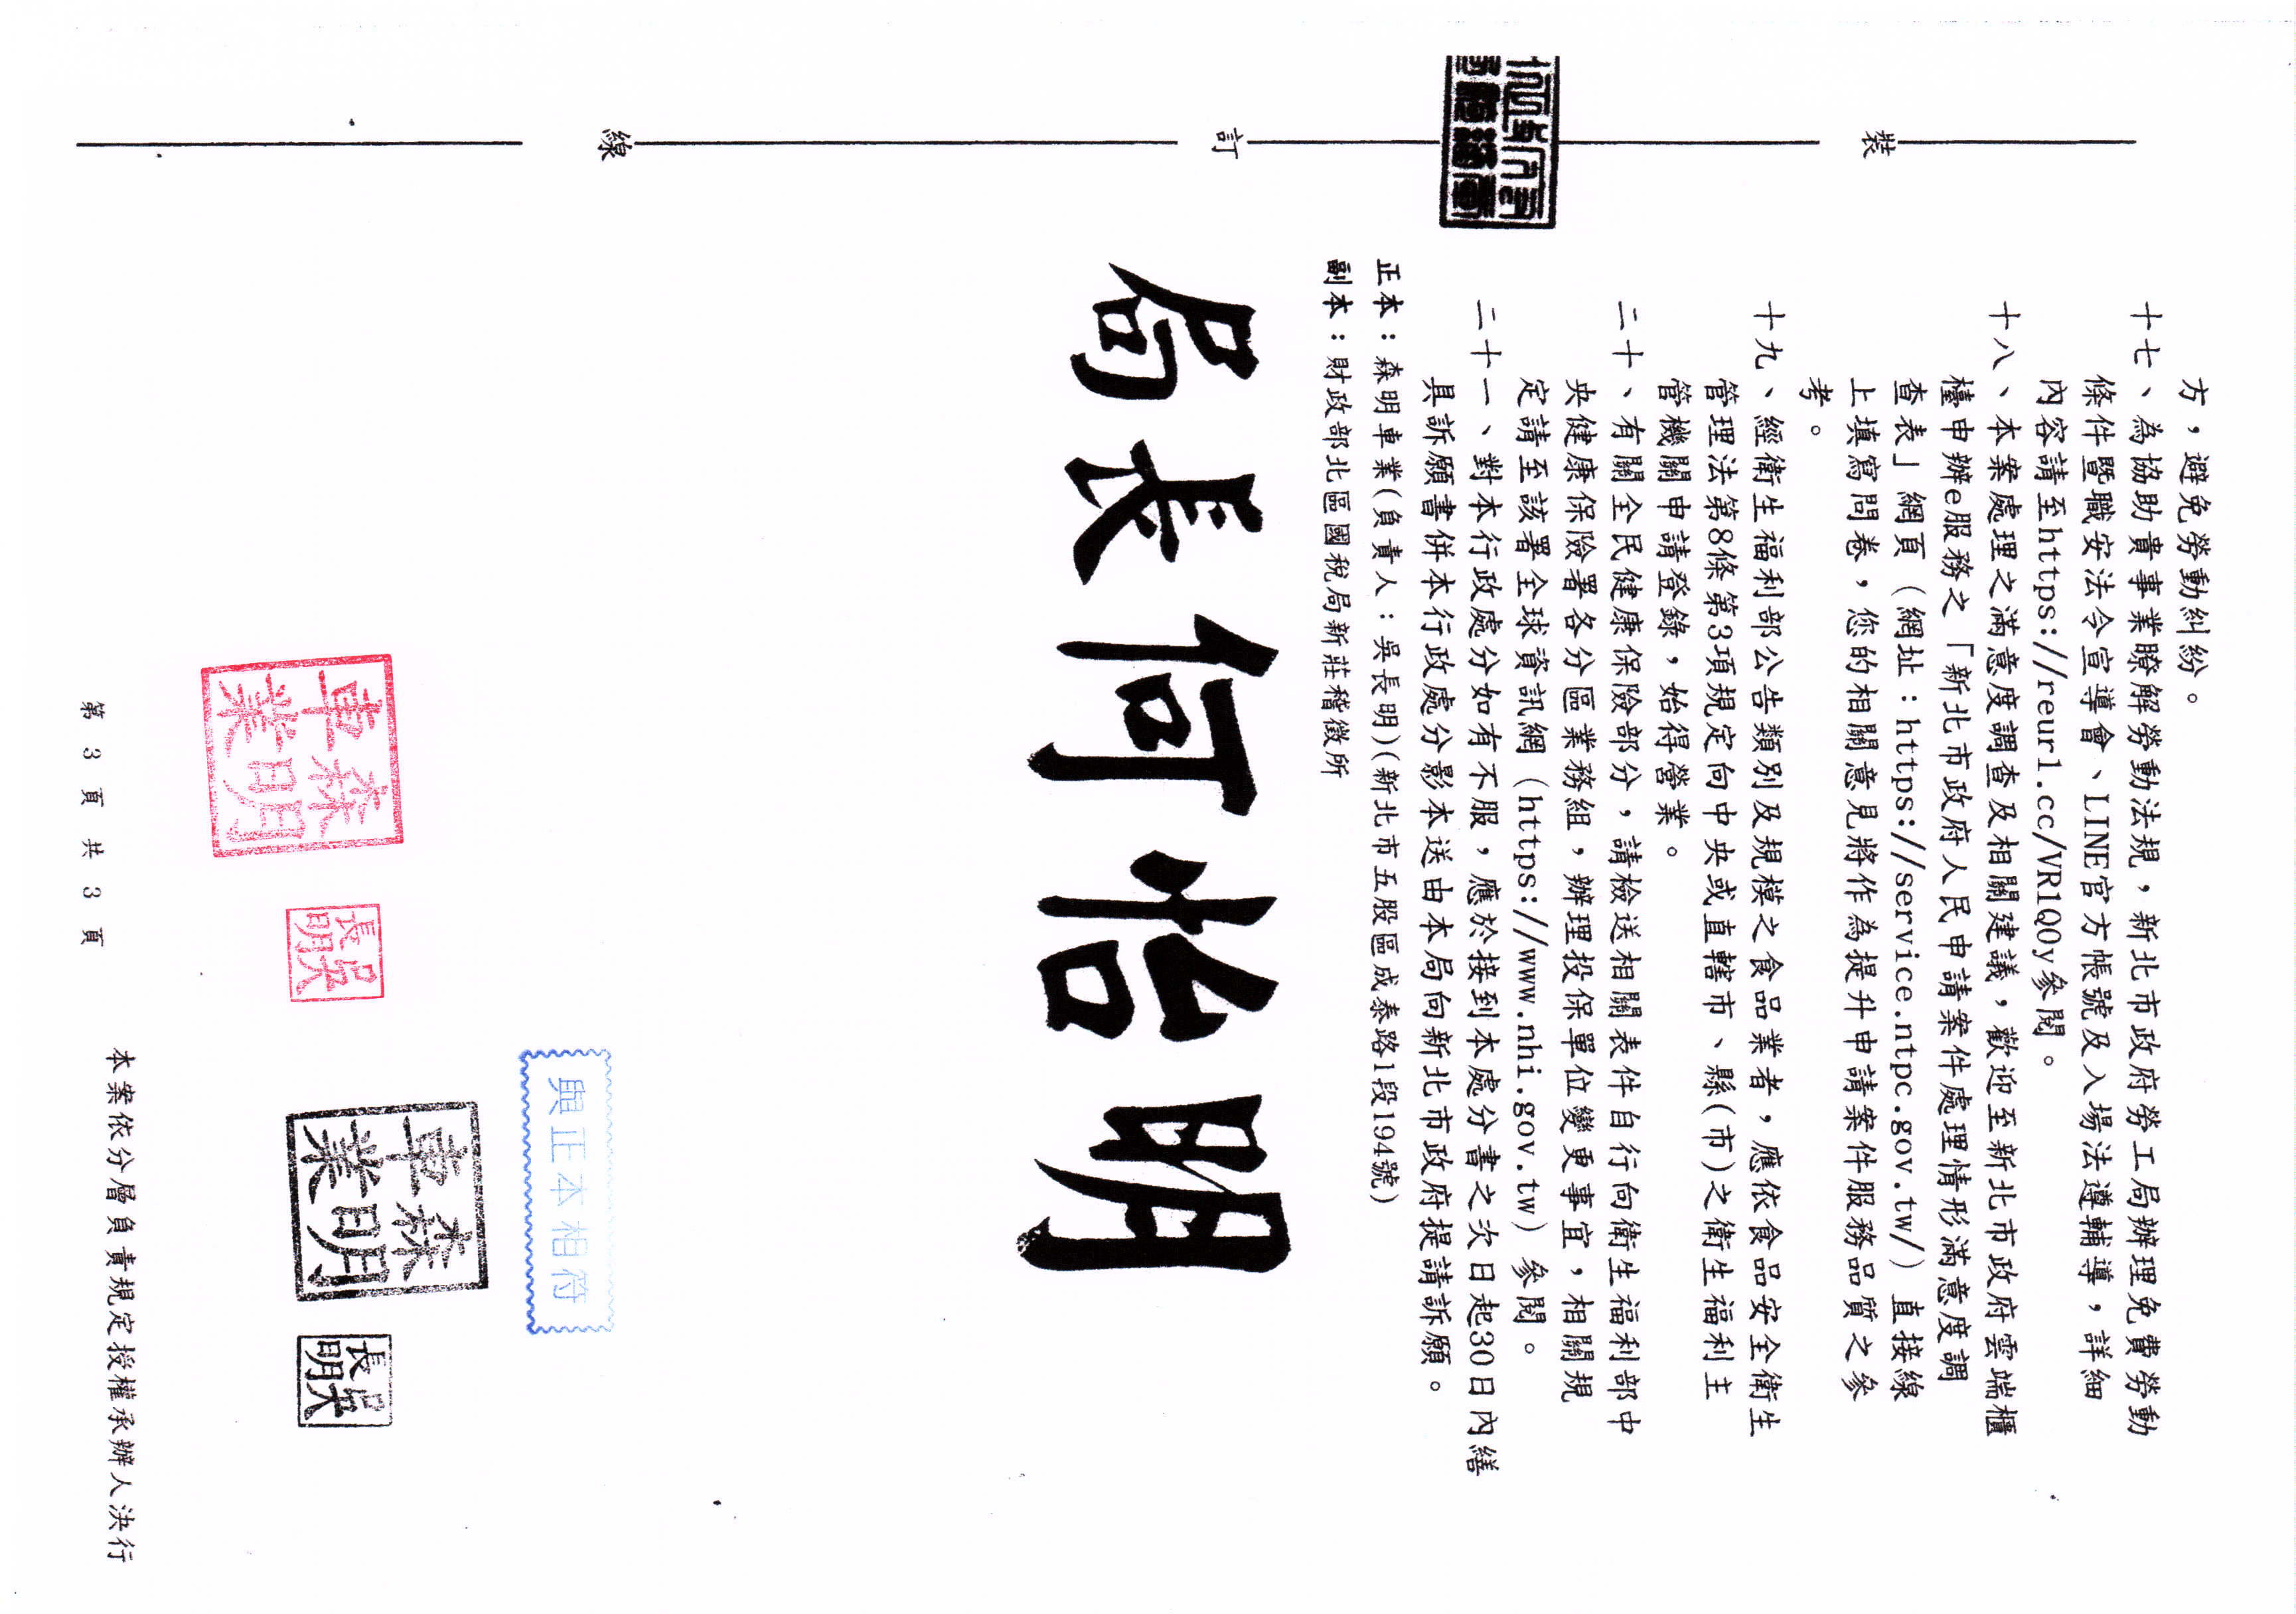 方，避免勞動糾紛。
十七、為協助貴事業瞭解勞動法規，新北市政府勞工局辦理免費勞動
條件暨職安法令宣導會、LINE官方帳號及入場法遵輔導，詳細
內容請至https://reurl.cc/VR1Q0y參閱。
十八、本案處理之滿意度調查及相關建議，歡迎至新北市政府雲端櫃
檯申辦e服務之「新北市政府人民申請案件處理情形滿意度調
查表」網頁（網址：https://service.ntpc.gov.tw/）直接線
上填寫問卷，您的相關意見將作為提升申請案件服務品質之參
考。
十九、經衛生福利部公告類別及規模之食品業者，應依食品安全衛生
管理法第8條第3項規定向中央或直轄市、縣(市)之衛生福利主
管機關申請登錄，始得營業。
二十、有關全民健康保險部分，請檢送相關表件自行向衛生福利部中
央健康保險署各分區業務組，辦理投保單位變更事宜，相關規
定請至該署全球資訊網（https://www.nhi.gov.tw）參閱。
二十一、對本行政處分如有不服，應於接到本處分書之次日起30日內繕
具訴願書併本行政處分影本送由本局向新北市政府提請訴願。
正本：森明車業(負責人：吳長明)(新北市五股區成泰路1段194號)
副本：財政部北區國稅局新莊稽徵所
局長何怡明
裝
訂
線
與正本相符
森明
車業
吳
長明
森明
車業
吳
長明
第 3 頁 共 3 頁
本案依分層負責規定授權承辦人決行